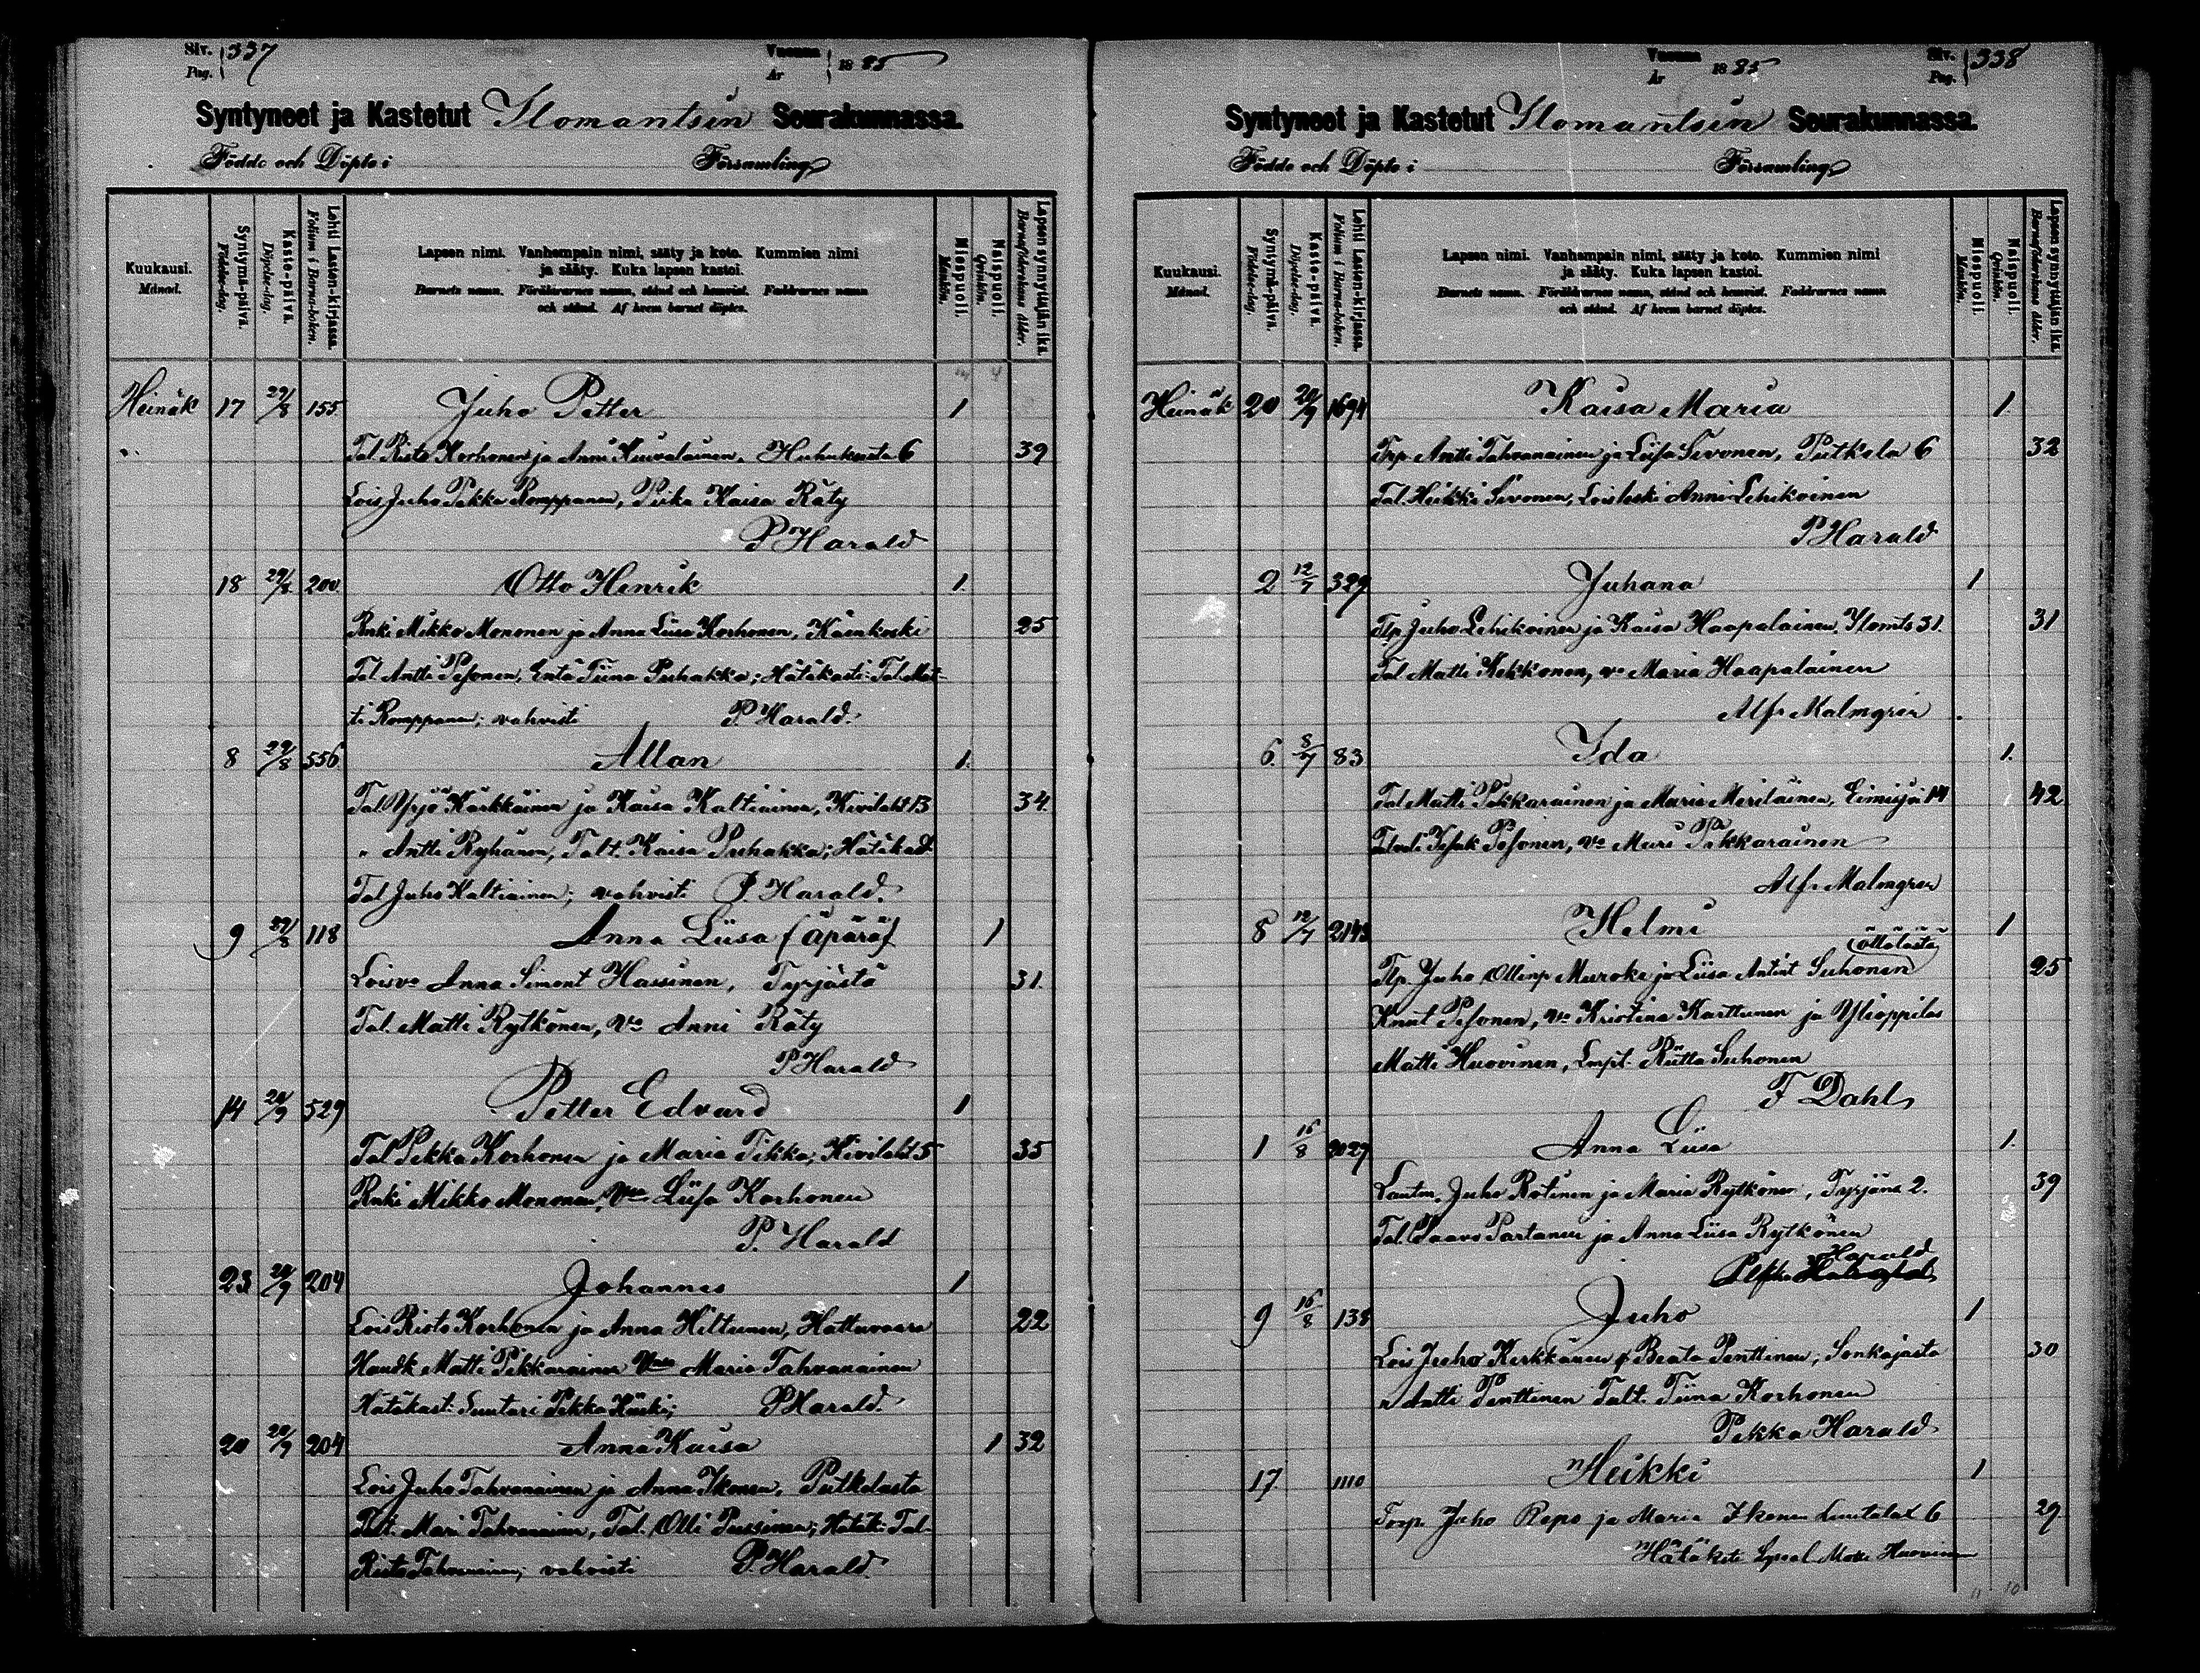 Siv. Pag. 337
Vuonna År 1885
Syntyneet ja Kastetut Ilomantsin Seurakunnassa.
Födde och Döpte i Församling
Kuukausi. Månad.
Syntymä-päivä. Födelse-dag.
Kaste-päivä. Döpelse-dag.
Lehti Lasten-kirjassa. Folium i Barna-boken.
Lapsen nimi. Vanhempain nimi, sääty ja koto. Kummien nimi
ja sääty. Kuka lapsen kastoi.
Barnets namn. Föräldrarnes namn, stånd och hemvist. Faddrarnes namn
och stånd. Af hvem barnet döptes.
Miespuoli. Mankön.
Naispuoli. Qvinkön.
Lapsen synnyttäjän ikä. Barnaföderskans ålder.
Heinäk 17 29/8 155 Juho Petter 1
Tal Risto Korhonen ja Anni Kuivalainen, Huhukusta 6 39
Lois Juho Pekka Romppanen, Piika Kaisa Räty
P Harald
18 29/8 200 Otto Henrik 1.
Rnki Mikko Mononen ja Anna Liisa Korhonen, Käenkoski 25
Tal Antti Pesonen, Entä Tiina Puhakka; Hätäkasti: Tal. Mat-
ti Romppanen; vahvisti P. Harald.
8 29/8 556 Allan 1.
Tal Yrjö Kärkkäinen ja Kaisa Kaltiainen, Kivilaht 13 34.
" Antti Ryhänen, Talt. Kaisa Puhakka; Hätäkast
Tal Juho Kaltiainen; vahvisti P. Harald.
9 29/8 118 Anna Liisa (äpärä) 1
Loisvo Anna Simont Hassinen, Tyrjästä 31.
Tal. Matti Rytkönen, Vo Anni Räty
P Harald
14 20/9 529 Petter Edvard 1
Tal Pekka Korhonen ja Maria Tikka; Kivilaht 5 35
Rnki Mikko Mononen, Vmo Liisa Korhonen
P. Harald
23 20/9 204 Johannes 1
Lois Risto Korhonen ja Anna Hiltunen, Hattuvaara 22
Haudk Matti Pikkarainen Vmo Maria Tahvanainen
Hätäkast: Suutari Pekka; P Harald.
20 20/9 204 Anna Kaisa 1 32
Lois Juho Tahvanainen ja Anna Ikonen, Putkelasta
Talt. Mari Tahvanainen, Tal. Olli Pussinen; Hätäk: Tal-
Risto Tahvanainen; vahvisti P. Harald.
Vuonna År 1885
Siv. Pag. 338
Syntyneet ja Kastetut Ilomantsin Seurakunnassa.
Födde och Döpte i Församling
Kuukausi. Månad.
Syntymä-päivä. Födelse-dag.
Kaste-päivä. Döpelse-dag.
Lehti Lasten-kirjassa. Folium i Barna-boken.
Lapsen nimi. Vanhempain nimi, sääty ja koto. Kummien nimi
ja sääty. Kuka lapsen kastoi.
Barnets namn. Föräldrarnes namn, stånd och hemvist. Faddrarnes namn
och stånd. Af hvem barnet döptes.
Miespuoli. Mankön.
Naispuoli. Qvinkön.
Lapsen synnyttäjän ikä. Barnaföderskans ålder.
Heinäk 20 20/9 1694 Kaisa Maria 1
Trp. Antti Tahvanainen ja Liisa Sivonen, Putkela 6 32
Tal. Heikki Sivonen, Loisleski Anni Lehikoinen
P Harald
2 12/7 329 Juhana 1
Tlp. Juho Lehikoinen ja Kaisa Haapalainen. Ylomts 31. 31
Tal Matti Kekkonen, vo Maria Haapalainen
Alfr Malmgren
6. 8/7 83 Ida 1.
Tal Matti Pikkarainen ja Maria Meriläinen, Eimisjä 14 42
Talveli Isak Pesonen, Vo Mari Pikkarainen
Alfr Malmgren
8 12/7 2143 Helmi 1
(öttölästä)
Tlp. Juho Ollinp Muroke ja Liisa Antint Suhonen 25
Knut Pesonen, Vo Kristina Karttunen ja Ylioppilas
Matti Huovinen, Lmpt. Riitta Suhonen
F Dahl
1 16/8 2029 Anna Liisa 1.
Lautm. Juho Rotinen ja Maria Rytkönen, Tyrjänä 2. 39
Tal. Paavo Partanen ja Anna Liisa Rytkönen
Harald
9 16/8 138 Juho 1
Lois Juho Kerkkänen & Beata Penttinen, Sonkajasta 30
" Antti Penttinen Talt. Tiina Korhonen
Pekka Harald
17. 1110 Heikki 1
Torp. Juho Repo ja Maria Ikonen Luutalax 6 29
Hätäkste Lyseal Moses Huovinen
11 10